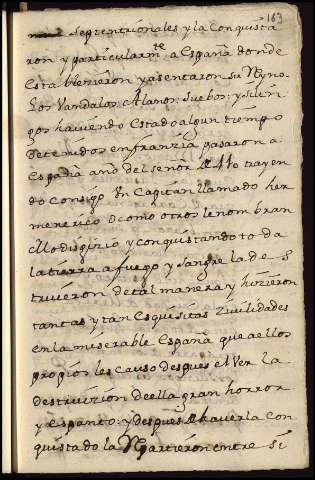 163
Septentrionales y la Conquista
ron y particularmte a España donde
establezieron y asentaron su Reyno
Los Vandalos: Alanos: Suebos: y Silin
gos haviendo estado algun tiempo
detenidos en franzia pasaron a
España año del señor de 410 trayen
do consigo Un Capitan llamado her
menerico o como otros le nombran
y conquistando toda
la tierra a fuego y sangre la de s
truieron de tal manera y hizieron
tantas y tan esquisitas zuilidades
en la miserable España que a ellos
propios les causo despues el Ver la
destruizion de ella gran horror
y espanto: y despues de haverla con
quistado la Repartieron entre si